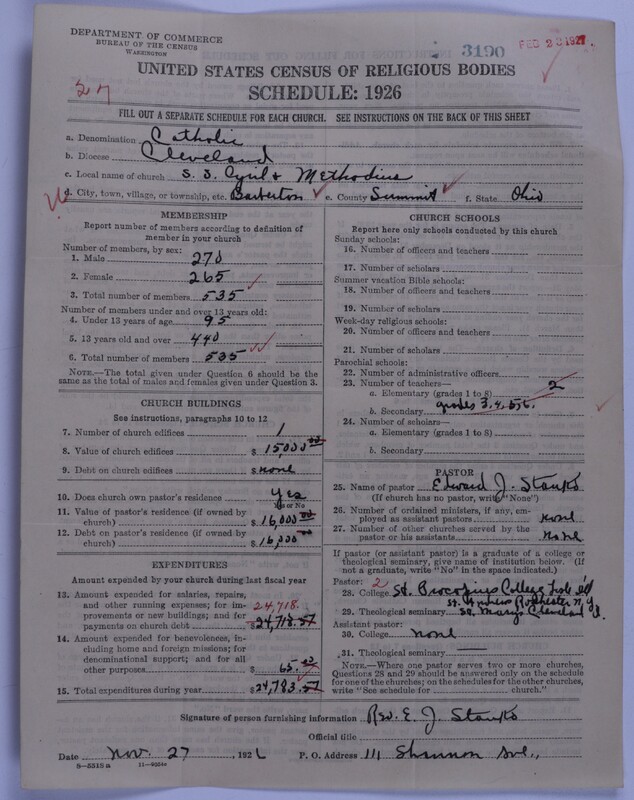 DEPARTMENT OF COMMERCE
BUREAU OF THE CENSUS
WASHINGTON
3190
FEB 23 1927
UNITED STATES CENSUS OF RELIGIOUS BODIES
SCHEDULE: 1926
27
FILL OUT A SEPARATE SCHEDULE FOR EACH CHURCH. SEE INSTRUCTIONS ON THE BACK OF THIS SHEET
a. Denomination Catholic
b. Diocese Cleveland
c. Local name of church S. S. Cyril & Methodius
d. City, town, village, or township, etc. Barberton e. County Summit f. State Ohio
MEMBERSHIP
Report number of members according to definition of
member in your church
Number of members, by sex:
1. Male 270
2. Female 265
3. Total number of members 535
Number of members under and over 13 years old:
4. Under 13 years of age 95
5. 13 years old and over 440
6. Total number of members 535
NOTE.—The total given under Question 6 should be the
same as the total of males and females given under Question 3.
CHURCH BUILDINGS
See instructions, paragraphs 10 to 12
7. Number of church edifices 1
8. Value of church edifices $ 15,000 00
9. Debt on church edifices $ none
10. Does church own pastor's residence Yes
Yes or No
11. Value of pastor's residence (if owned by
church) $ 16,000 00
12. Debt on pastor's residence (if owned by
church) $ 16,000 00
EXPENDITURES
Amount expended by your church during last fiscal year
13. Amount expended for salaries, repairs,
and other running expenses; for im-
provements or new buildings; and for
payments on church debt 24,718. $ 24,718.57
14. Amount expended for benevolences, in-
cluding home and foreign missions; for
denominational support; and for all
other purposes $ 65.00
15. Total expenditures during year $ 24,783.57
CHURCH SCHOOLS
Report here only schools conducted by this church
Sunday schools:
16. Number of officers and teachers
17. Number of scholars
Summer vacation Bible schools:
18. Number of officers and teachers
19. Number of scholars
Week-day religious schools:
20. Number of officers and teachers
21. Number of scholars
Parochial schools:
22. Number of administrative officers
23. Number of teachers—
a. Elementary (grades 1 to 8) 2
b. Secondary grades 3. 4. 5. 6.
24. Number of scholars—
a. Elementary (grades 1 to 8)
b. Secondary
PASTOR
25. Name of pastor Edward J. Stanko
(If church has no pastor, write "None")
26. Number of ordained ministers, if any, em-
ployed as assistant pastors none
27. Number of other churches served by the
pastor or his assistants none
If pastor (or assistant pastor) is a graduate of a college or
theological seminary, give name of institution below. (If
not a graduate, write "No" in the space indicated.)
Pastor: 2
28. College St. Procopius College Lisle Ill
St. Andrews Rochester N. Y.
29. Theological seminary St. Marys Cleveland O.
Assistant pastor:
30. College none
31. Theological seminary
NOTE.—Where one pastor serves two or more churches,
Questions 28 and 29 should be answered only on the schedule
for one of the churches; on the schedules for the other churches,
write "See schedule for church."
Signature of person furnishing information Rev. E. J. Stanko
Official title
Date Nov. 27, 1926 P. O. Address 111 Shannon Ave.,
8—5519 a 11—9204